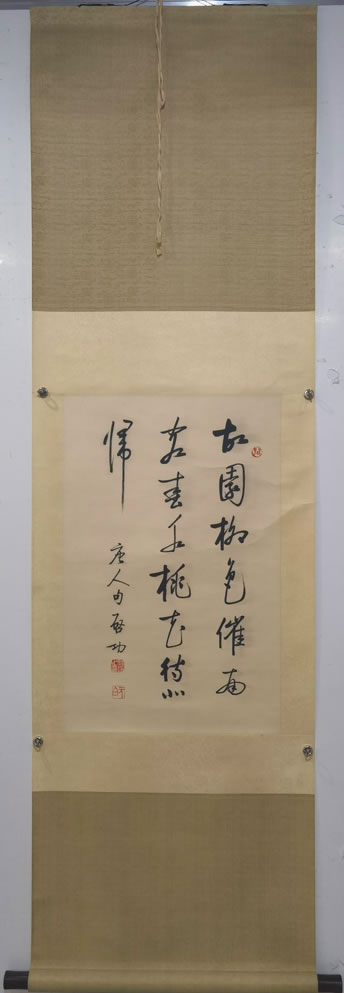 故園柳色催南
客春水桃花待北
歸
唐人句啟功